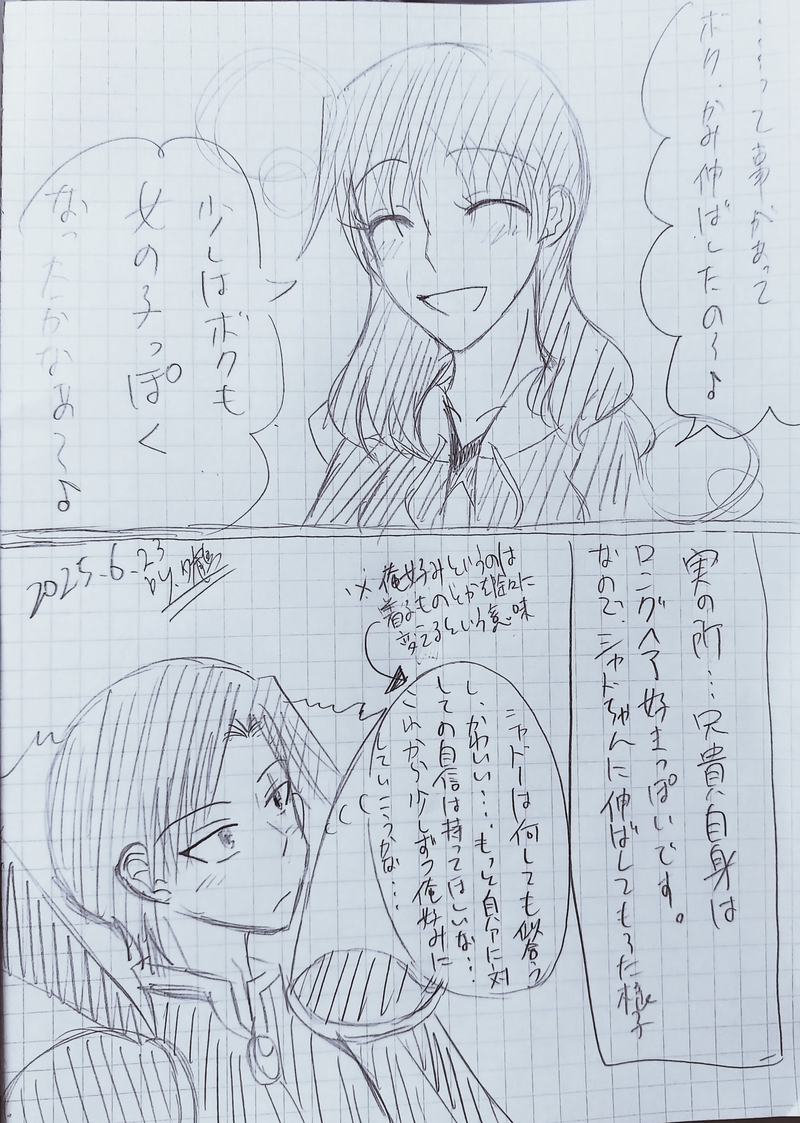 ……って事があって
ボク、かみ伸ばしたの〜♪
少しはボクも
女の子っぽく
なったかなあ〜♪
実の所…兄貴自身は
ロングヘアー好きっぽいです。
なので、シャドちゃんに伸ばしてもろた様子
2025.6.23
by.
※俺好みというのは
着るものとかを
変えるという意味
シャドーは何しても似合う
し、かわいい…もっと自分に対
しての自信は持ってほしいな…
これから少しずつ俺好みに
していこうかな…